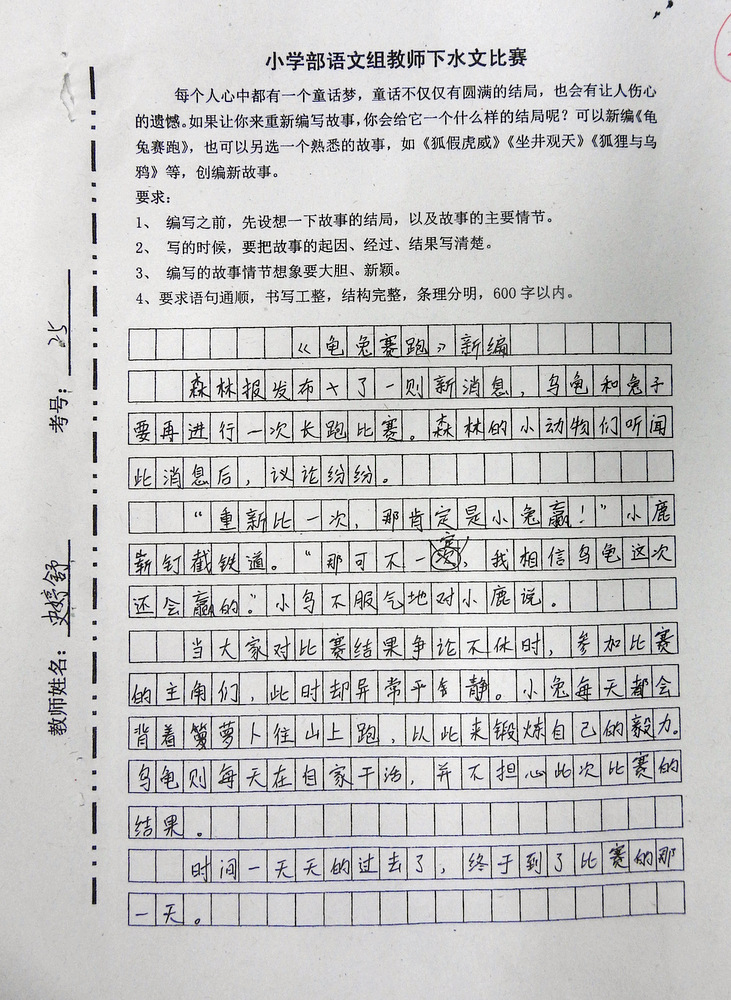 小学部语文组教师下水文比赛
每个人心中都有一个童话梦，童话不仅仅有圆满的结局，也会有让人伤心
的遗憾。如果让你来重新编写故事，你会给它一个什么样的结局呢？可以新编《龟
兔赛跑》，也可以另选一个熟悉的故事，如《狐假虎威》《坐井观天》《狐狸与乌
鸦》等，创编新故事。
要求：
1、 编写之前，先设想一下故事的结局，以及故事的主要情节。
2、 写的时候，要把故事的起因、经过、结果写清楚。
3、 编写的故事情节想象要大胆、新颖。
4、要求语句通顺，书写工整，结构完整，条理分明，600字以内。
考号：25
教师姓名：史婷舒
《龟兔赛跑》新编
森林报发布了一则新消息，乌龟和兔子
要再进行一次长跑比赛。森林的小动物们听闻
此消息后，议论纷纷。
“重新比一次，那肯定是小兔赢！”小鹿
崭钉截铁道。“那可不一赛，我相信乌龟这次
还会赢的。”小鸟不服气地对小鹿说。
当大家对比赛结果争论不休时，参加比赛
的主角们，此时却异常平静。小兔每天都会
背着萝卜往山上跑，以此来锻炼自己的毅力。
乌龟则每天在自家干活，并不担心此次比赛的
结果。
时间一天天的过去了，终于到了比赛的那
一天。